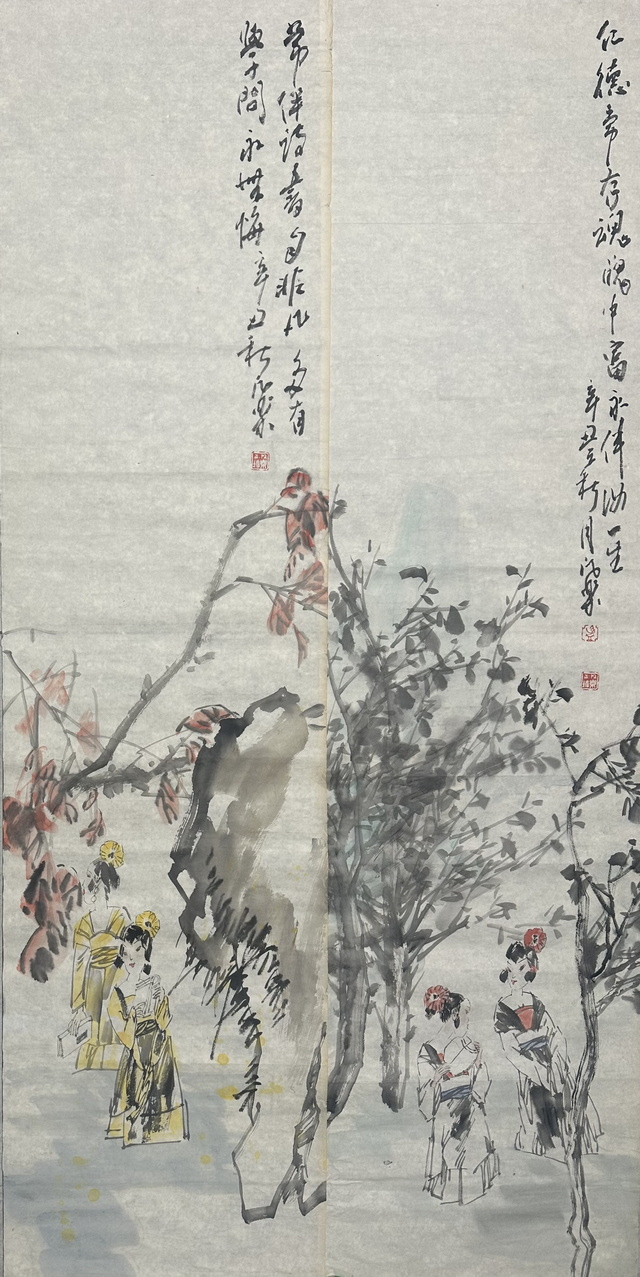 仁德常存魂魄中富永伴一生
辛丑秋月
常伴诗書自非凡多有
學問永無悔辛丑秋